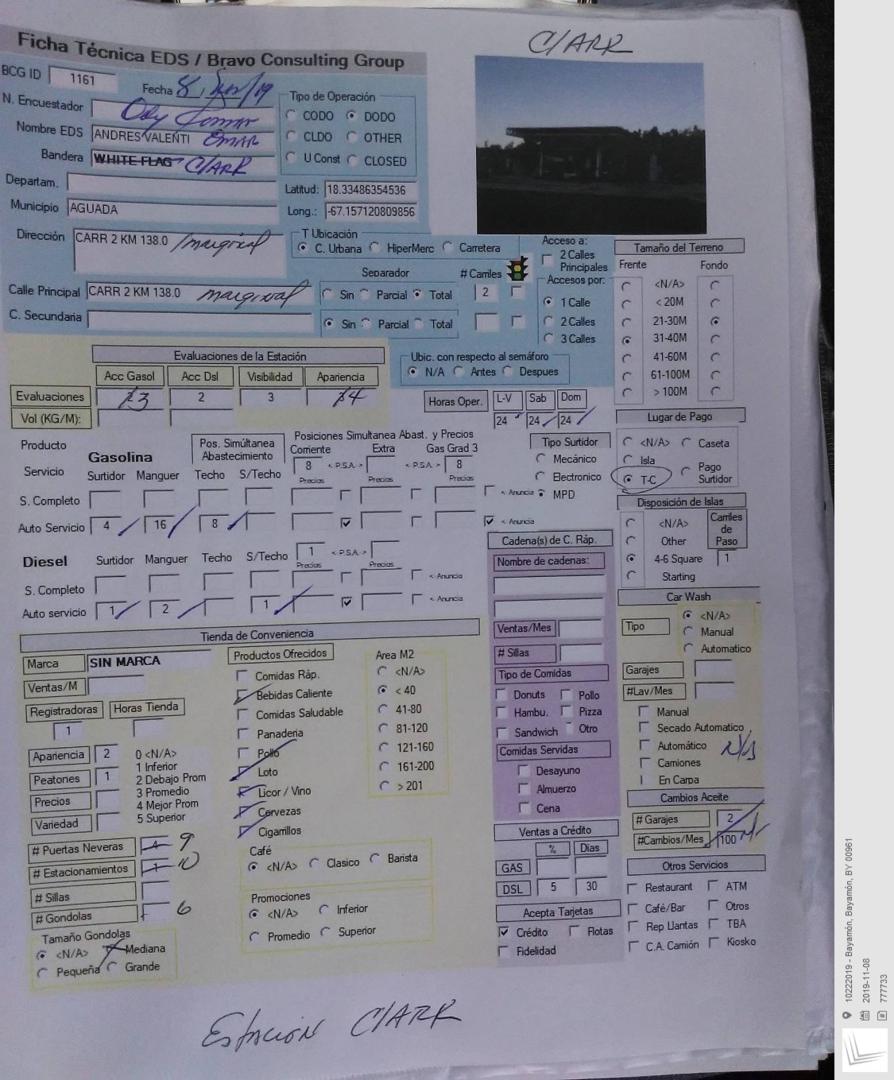 C/ARR
Ficha Técnica EDS / Bravo Consulting Group
BCG ID 1161
Fecha 8
N. Encuestador
Nombre EDS ANDRES VALENTI OMAR
Bandera WHITE FLAG C/ARR
Departam.
Municipio AGUADA
Tipo de Operación
CODO DODO
CLDO OTHER
U Const CLOSED
Latitud: 18.33486354536
Long.: -67.157120809856
Dirección CARR 2 KM 138.0 marginal
Calle Principal CARR 2 KM 138.0 marginal
C. Secundaria
T Ubicación
C. Urbana HiperMerc Carretera
Separador # Carriles
Sin Parcial Total 2
Sin Parcial Total
Acceso a:
2 Calles
Principales
Accesos por:
1 Calle
2 Calles
3 Calles
Tamaño del Terreno
Frente Fondo
<N/A>
< 20M
21-30M
31-40M
41-60M
61-100M
> 100M
Evaluaciones de la Estación
Acc Gasol Acc Dsl Visibilidad Apariencia
Evaluaciones 3 2 3 4
Vol (KG/M):
Ubic. con respecto al semáforo
N/A Antes Despues
Horas Oper. L-V Sab Dom
24 24 24
Lugar de Pago
<N/A> Caseta
Isla
T-C Pago
Surtidor
Producto
Servicio
Gasolina
Surtidor Manguer
Pos. Simultánea
Abastecimiento
Techo S/Techo
Posiciones Simultanea Abast. y Precios
Corriente Extra Gas Grad 3
8 < P.S.A. > < P.S.A. > 8
Precios Precios Precios
S. Completo < Anuncia
Auto Servicio 4 16 8 < Anuncia
Tipo Surtidor
Mecánico
Electronico
MPD
Disposición de Islas
<N/A>
Other
4-6 Square
Starting
Carriles
de
Paso
1
Diesel
Surtidor Manguer Techo S/Techo 1 < P.S.A. >
Precios Precios
S. Completo < Anuncia
Auto servicio 1 2 1 < Anuncia
Cadena(s) de C. Ráp.
Nombre de cadenas:
Ventas/Mes
# Sillas
Tipo de Comidas
Donuts Pollo
Hambu. Pizza
Sandwich Otro
Comidas Servidas
Desayuno
Almuerzo
Cena
Car Wash
Tipo
<N/A>
Manual
Automatico
Garajes
#Lav/Mes
Manual
Secado Automatico
Automático
Camiones
En Carpa
Tienda de Conveniencia
Marca SIN MARCA
Ventas/M
Registradoras Horas Tienda
1
Apariencia 2
Peatones 1
Precios
Variedad
0 <N/A>
1 Inferior
2 Debajo Prom
3 Promedio
4 Mejor Prom
5 Superior
# Puertas Neveras 9
# Estacionamientos 10
# Sillas
# Gondolas 6
Tamaño Gondolas
<N/A> Mediana
Pequeña Grande
Productos Ofrecidos
Comidas Ráp.
Bebidas Caliente
Comidas Saludable
Panaderia
Pollo
Loto
Licor / Vino
Cervezas
Cigarillos
Area M2
<N/A>
< 40
41-80
81-120
121-160
161-200
> 201
Café
<N/A> Clasico Barista
Promociones
<N/A> Inferior
Promedio Superior
Ventas a Crédito
% Dias
GAS
DSL 5 30
Acepta Tarjetas
Crédito Flotas
Fidelidad
Cambios Aceite
# Garajes 2
#Cambios/Mes 100
Otros Servicios
Restaurant ATM
Café/Bar Otros
Rep Llantas TBA
C.A. Camión Kiosko
Estación C/ARR
10222019 - Bayamón, Bayamón, BY 00961
2019-11-08
777733